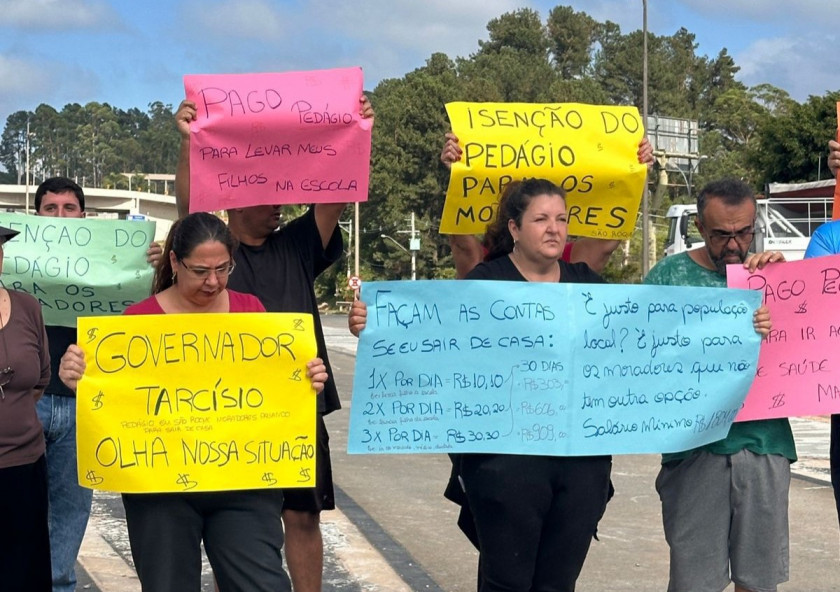 ENÇÃO DO
PEDÁGIO
PARA OS
MORADORES
PAGO PEDÁGIO
PARA LEVAR MEUS
FILHOS NA ESCOLA
ISENÇÃO DO
PEDÁGIO
PARA OS
MORADORES
SÃO ROQUE
GOVERNADOR
TARCÍSIO
PEDÁGIO EM SÃO ROQUE MORADORES
PARA SAIR DE CASA
OLHA NOSSA SITUAÇÃO
FAÇAM AS CONTAS
SE EU SAIR DE CASA:
30 DIAS
1X POR DIA = R$10,10 R$303,00
2X POR DIA = R$20,20 R$606,00
3X POR DIA = R$30,30 R$909,00
É justo para população
local? É justo para
os moradores que não
tem outra opção.
Salário Mínimo
PAGO
PARA IR AO
E SAÚDE